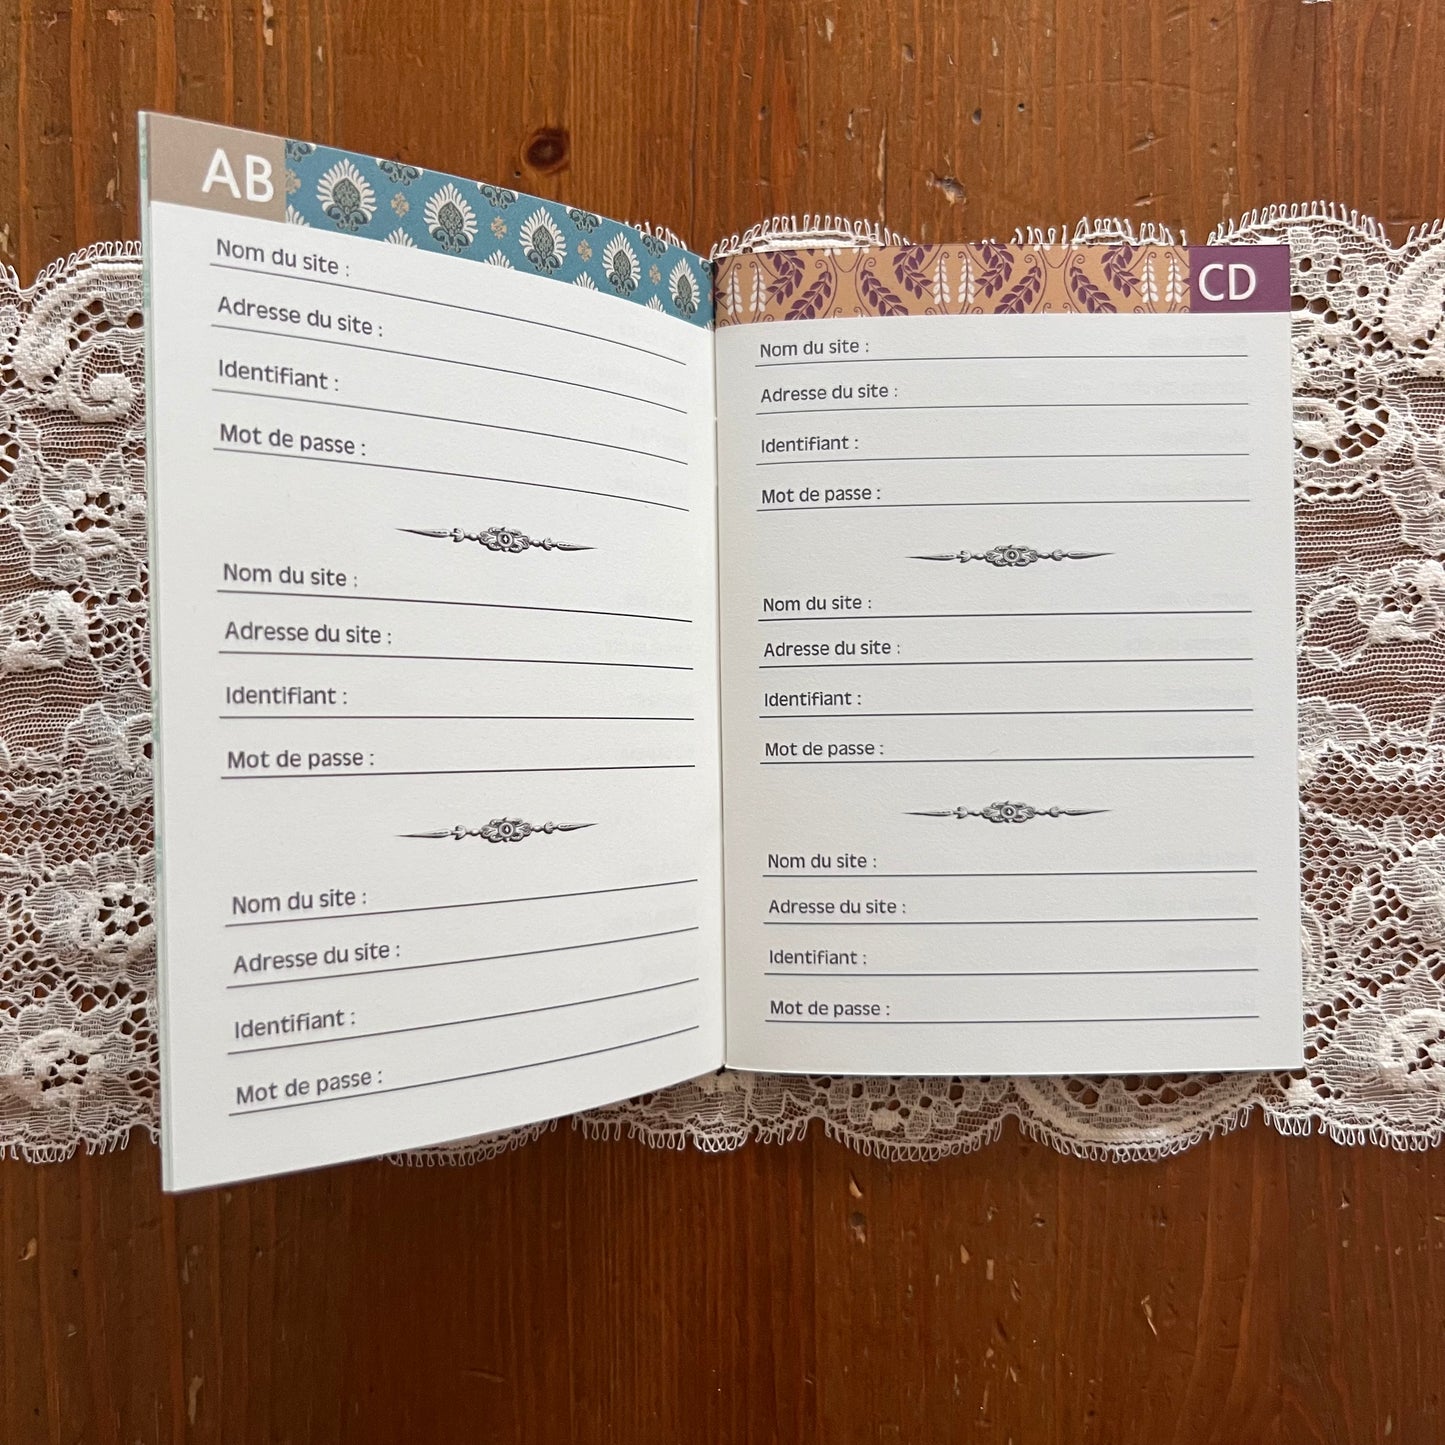 AB
Nom du site :
Adresse du site :
Identifiant :
Mot de passe :
Nom du site :
Adresse du site :
Identifiant :
Mot de passe :
Nom du site :
Adresse du site :
Identifiant :
Mot de passe :
CD
Nom du site :
Adresse du site :
Identifiant :
Mot de passe :
Nom du site :
Adresse du site :
Identifiant :
Mot de passe :
Nom du site :
Adresse du site :
Identifiant :
Mot de passe :